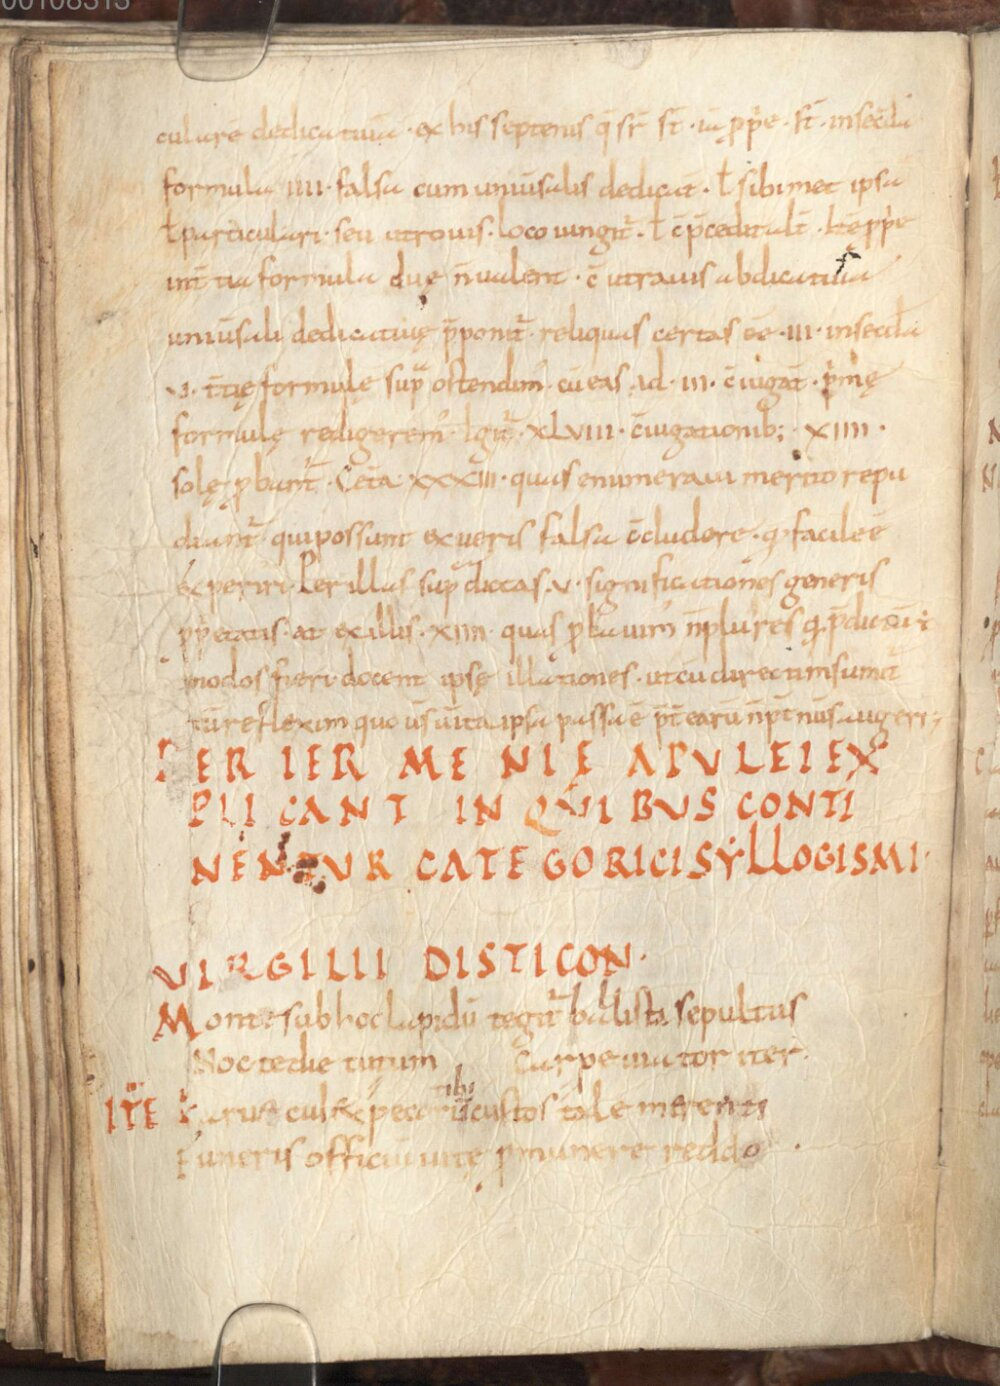 00108313
cularē dedicatiuā · ex his septenis q̄ sr̄ st̄ · iā ꝓp̄e · st̄ · in secd̄a
formula IIII · falsa cum uniūsalis dedicat̄ · ł sibimet ipsa
ł particulari · seu utrouis · loco iungit̄ · ł
in tia formula duę n̄ualent · c̄ utrauis abdicatiua
uniūsali dedicatiuę p̄ponit̄ · reliquas certas ēē · III · in secd̄a
VI · t̄tię formulę sup̄ ostendim̄ · cū eas ad · III · c̄iugat̄ · p̄mę
formulę redigerem̄ · Igit̄ · XLVIII · c̄iugationib; · XIIII ·
solę ꝓbant̄ · Cet̄a XXXIIII · quas enumeraui merito repu
diant̄ qui possunt ex ueris falsa c̄cludere · qd facile ē
experiri Per illas sup̄ dictas · V · significationes generis
ꝓp̄etatis · at ex illis · XIIII · quas ꝓbauim̄ n̄ plures
modos fieri docent ipsę illationes · ut cū directim sumat̄
tū reflexim quo usū uīta ipsa passa ē p̄t earū n̄ pt̄ nūs augeri;
PERIERMENIE APULEI EX
PLICANT IN QUIBUS CONTI
NENTUR CATEGORICI SYLLOGISMI ·
VIRGILII DISTICON ·
Monte sub hoc lapidū tegit̄ ballista sepultus
Nocte die tutum Carpe uiator iter ·
tibi
ITĒ Paruę culex pecorū custos tale merenti
Funeris officiū uitę ꝓ munere reddo ·